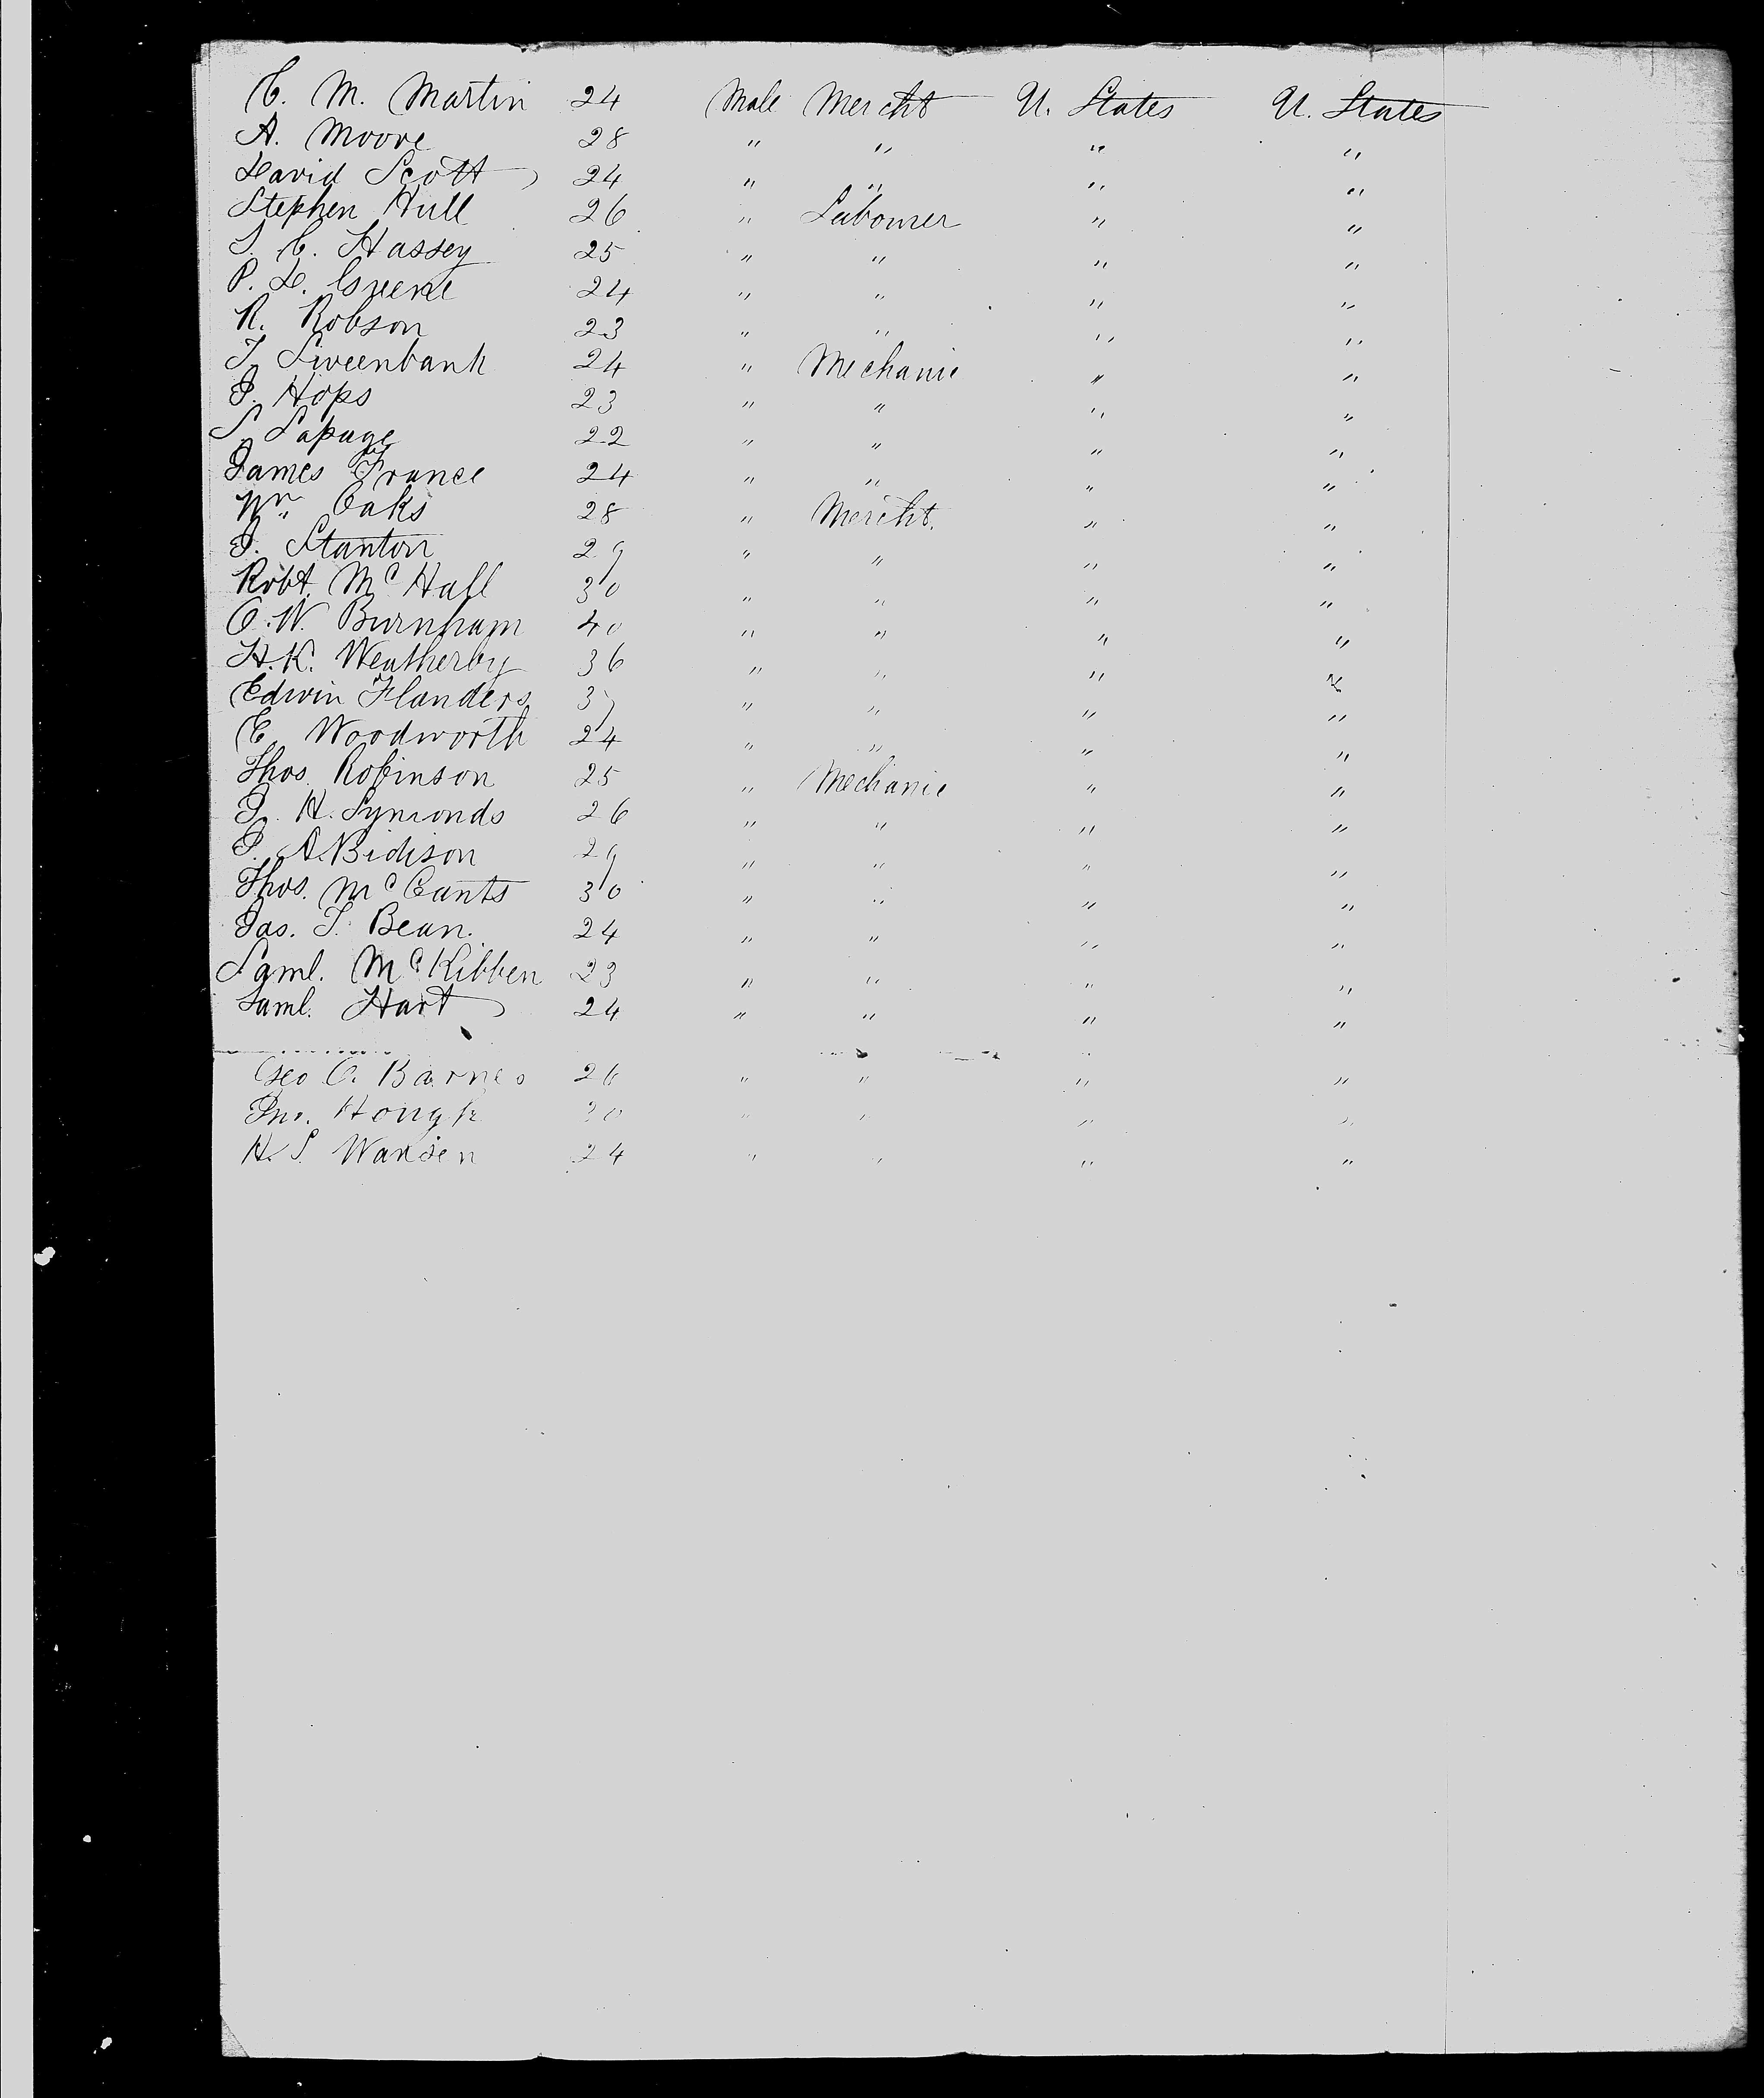 C. M. Martin 24 Male Mercht U. States U. States
A. Moore 28 " " " "
David Scott 24 " " " "
Stephen Hull 26 " Labourer " "
S. C. Hassey 25 " " " "
P. D. Greene 24 " " " "
R. Robson 23 " " " "
T. Sweenbank 24 " Mechanic " "
J. Hops 23 " " " "
S. Lapage 22 " " " "
James France 24 " " " "
Wm. Oaks 28 " Mercht. " "
J. Stanton 29 " " " "
Robt. McHall 30 " " " "
O. W. Burnham 40 " " " "
H. K. Weatherby 36 " " " "
Edwin Flanders " " " "
E. Woodworth 24 " " " "
Thos. Robinson 25 " Mechanic " "
J. H. Symonds 26 " " " "
A. Bidison 29 " " " "
Thos. McCants 30 " " " "
Jas. T. Bean. 24 " " " "
Saml. McKibben 23 " " " "
Saml. Hart 24 " " " "
Geo O. Barnes 26 " " " "
Jno. Hough 30 " " " "
H. S. 24 " " " "